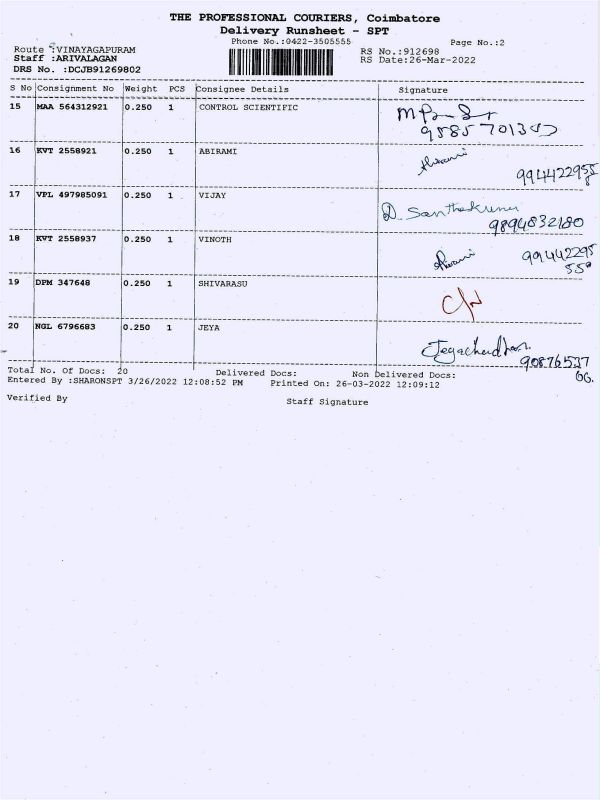 THE PROFESSIONAL COURIERS, Coimbatore
Delivery Runsheet - SPT
Phone No.:0422-3505555 Page No.:2
Route :VINAYAGAPURAM RS No.:912698
Staff :ARIVALAGAN RS Date:26-Mar-2022
DRS No. :DCJB91269802
S No Consignment No Weight PCS Consignee Details Signature
15 MAA 564312921 0.250 1 CONTROL SCIENTIFIC
16 KVT 2558921 0.250 1 ABIRAMI
17 VPL 497985091 0.250 1 VIJAY D. Santhakumar
9894832180
18 KVT 2558937 0.250 1 VINOTH
19 DPM 347648 0.250 1 SHIVARASU C/N
20 NGL 6796683 0.250 1 JEYA
Total No. Of Docs: 20 Delivered Docs: Non Delivered Docs:
Entered By :SHARONSPT 3/26/2022 12:08:52 PM Printed On: 26-03-2022 12:09:12
Verified By Staff Signature